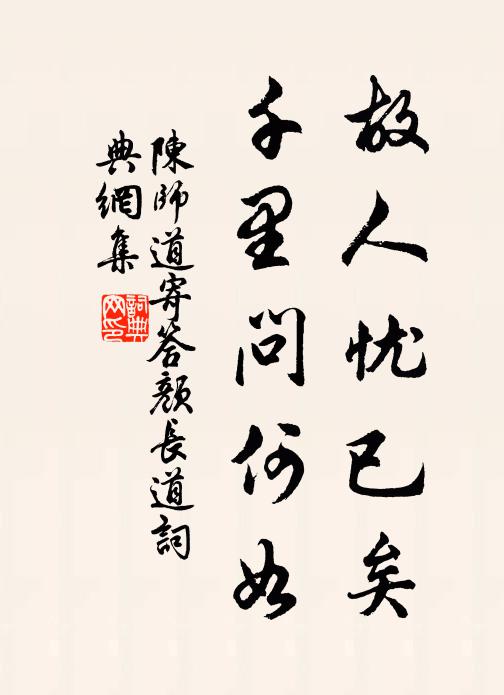 故人忧已矣
千里問何如
陳師道寄答顏長道詞
典網集
詞典
网印